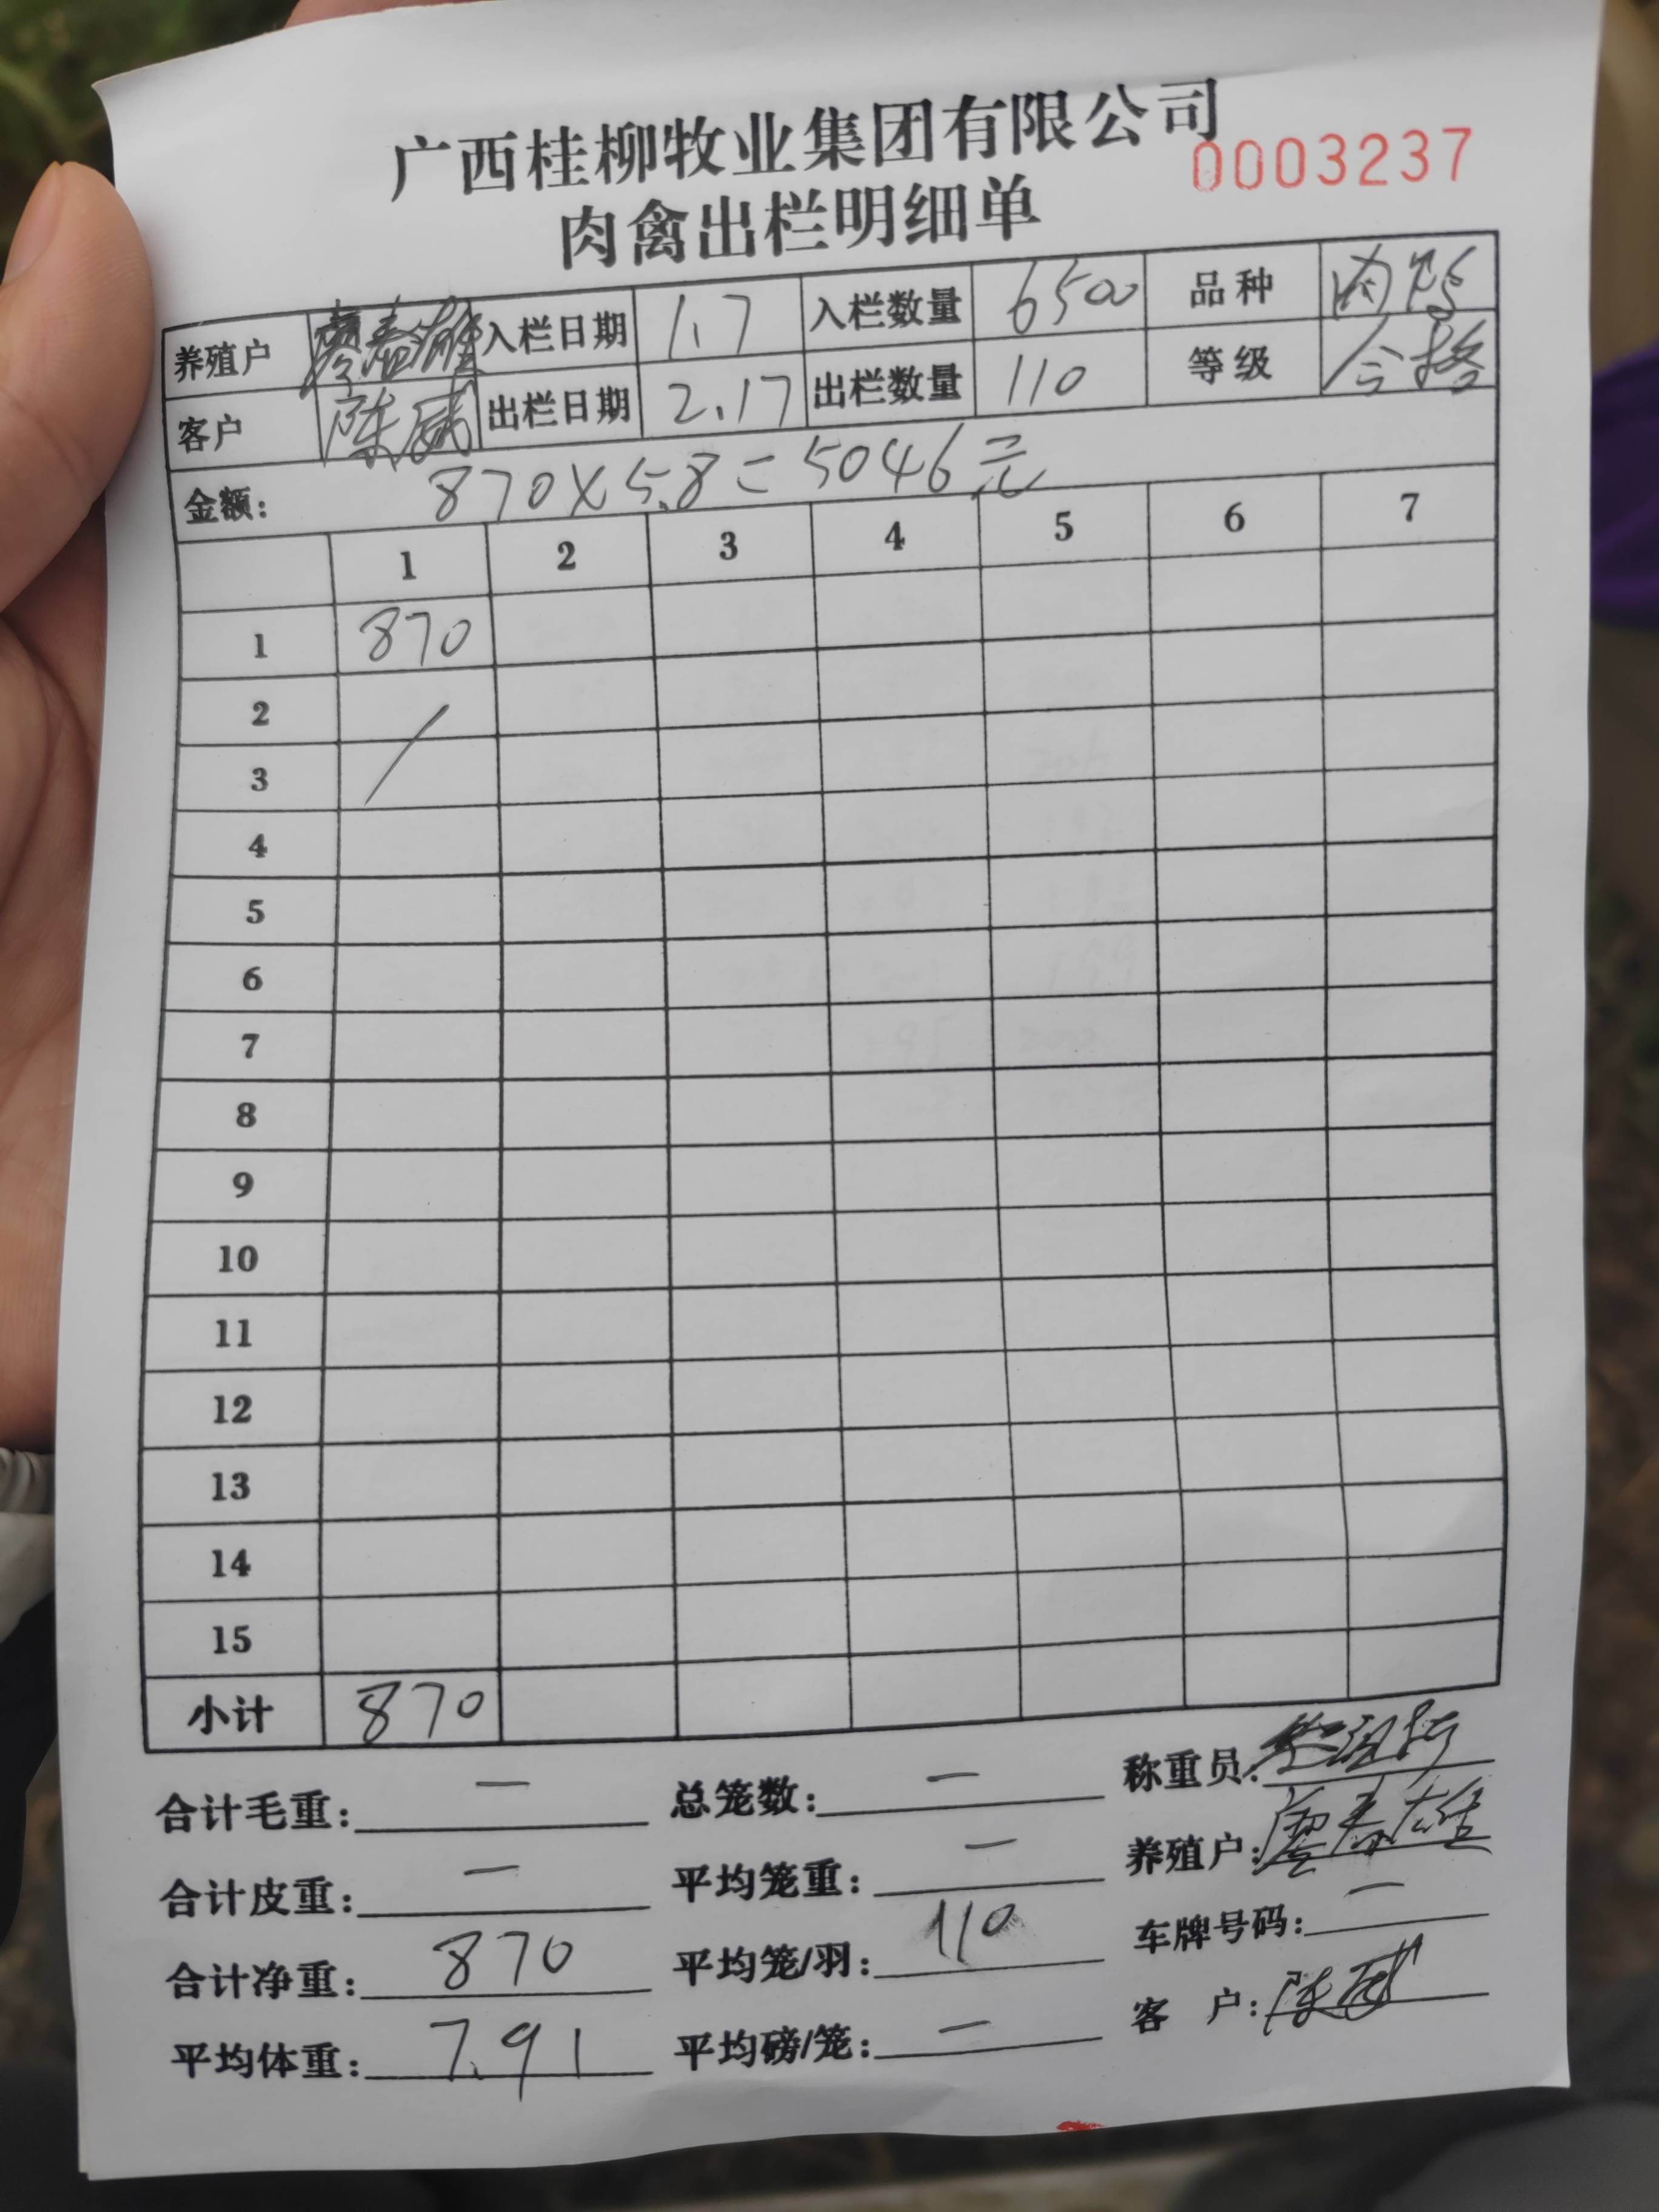 广西桂柳牧业集团有限公司
0003237
肉禽出栏明细单
养殖户 廖春雄 入栏日期 1.7 入栏数量 6500 品种 肉鸭
客户 陈威 出栏日期 2.17 出栏数量 110 等级 合格
金额: 870×5.8=5046元
1 2 3 4 5 6 7
1 870
2
3
4
5
6
7
8
9
10
11
12
13
14
15
小计 870
合计毛重: — 总笼数: — 称重员:
合计皮重: — 平均笼重: — 养殖户: 廖春雄
合计净重: 870 平均笼/羽: 110 车牌号码: —
平均体重: 7.91 平均磅/笼: — 客 户: 陈威